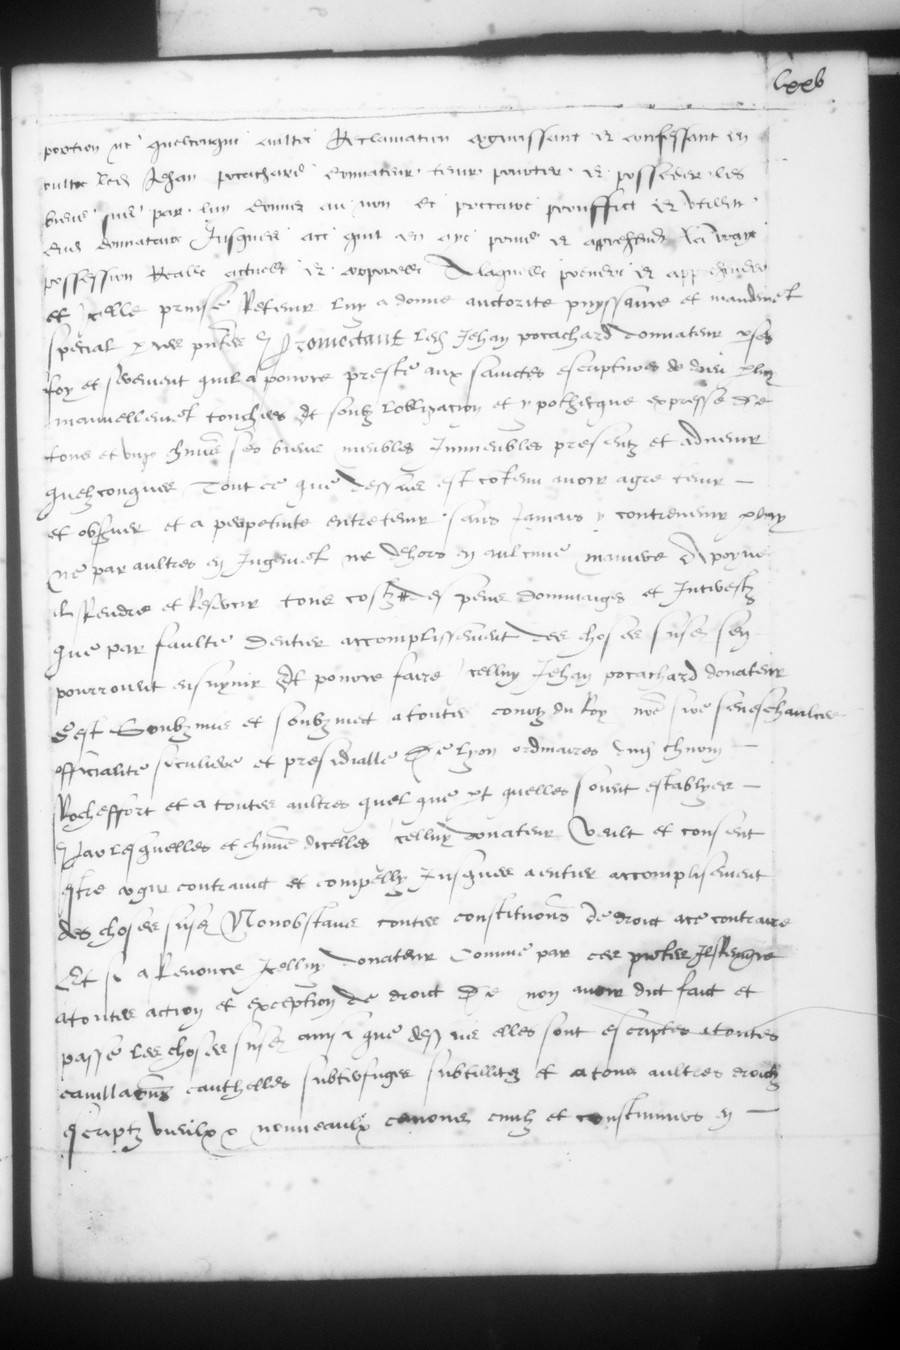 lxxv
portion ne quelconque aultre Reclamation cognoissant et confessant en
oultre led Jehan pocachard donnateur tenir et posseder les
biens susd par luy donnez au nom et prouffict et utilite
dud donnataire Jusques ace quil en ayt prins et apprehende la vraye
possession Realle actuelle et corporelle A laquelle prendre et apprehender
et Icelle prinse Retenir luy a donne auctorite puyssance et mandemet
special p ces pntes Promectant led Jehan pocachard donnateur p ses
foy et serement quil a pource preste aux sainctes escriptures de dieu
manuellemet touchees Et soubz lobligacion et ypothecque expresse de
tous et ses biens meubles Immeubles presentz et advenir
quelzconques Tout ce que dessus est cotenu avoir agre tenir
et obsuer et a perpetuite entretenir sans Jamais y contrevenir
Ne par aultres en Jugemet ne dehors en aulcune maniere A poyne
de Rendre et Reffaire tous coustz despens dommaiges et Interestz
que par faulte dentier accomplissement des choses susd
pourroient ensuyvir Et pource faire Icelluy Jehan pocachard donateur
Sest Soubzmis et soubzmet a toutes courtz du Roy nre sire seneschaulcee
officialite seculiere et presidialle De lyon ordinaires
Rocheffort et a toutes aultres quel que et quelles soient establyes
Par lesquelles et dicelles Icelluy donateur Veult et consent
estre contrainct et compelly Jusques a entier accomplisement
des choses susd Nonobstant toutes constitutions de droict a ce contraire
Et si a Renonce Icelluy donateur Comme par ces Il Renonce
a toutes action et exception de droict De non avoir dict faict et
passe les choses susd ainsi que dessus elles sont escriptes a toutes
cavillations cauthelles subterfuges subtillitez et a tous aultres droictz
escriptz vieilx nouveaulx canons civilz et constitumiers en